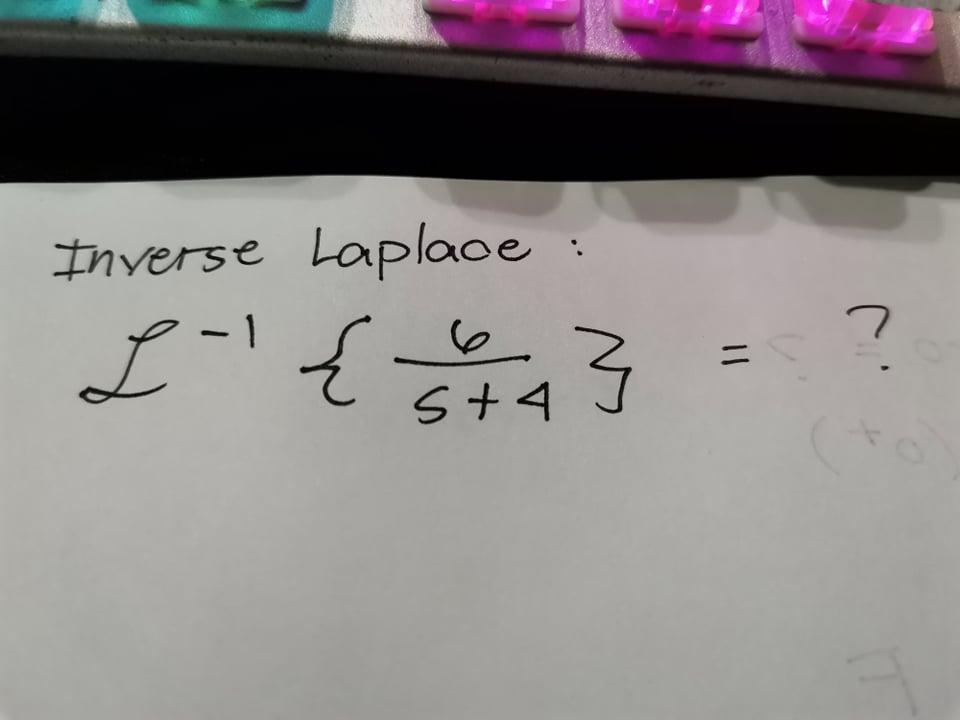 Inverse Laplace :
ℒ⁻¹ { 6/(s+4) } = ?